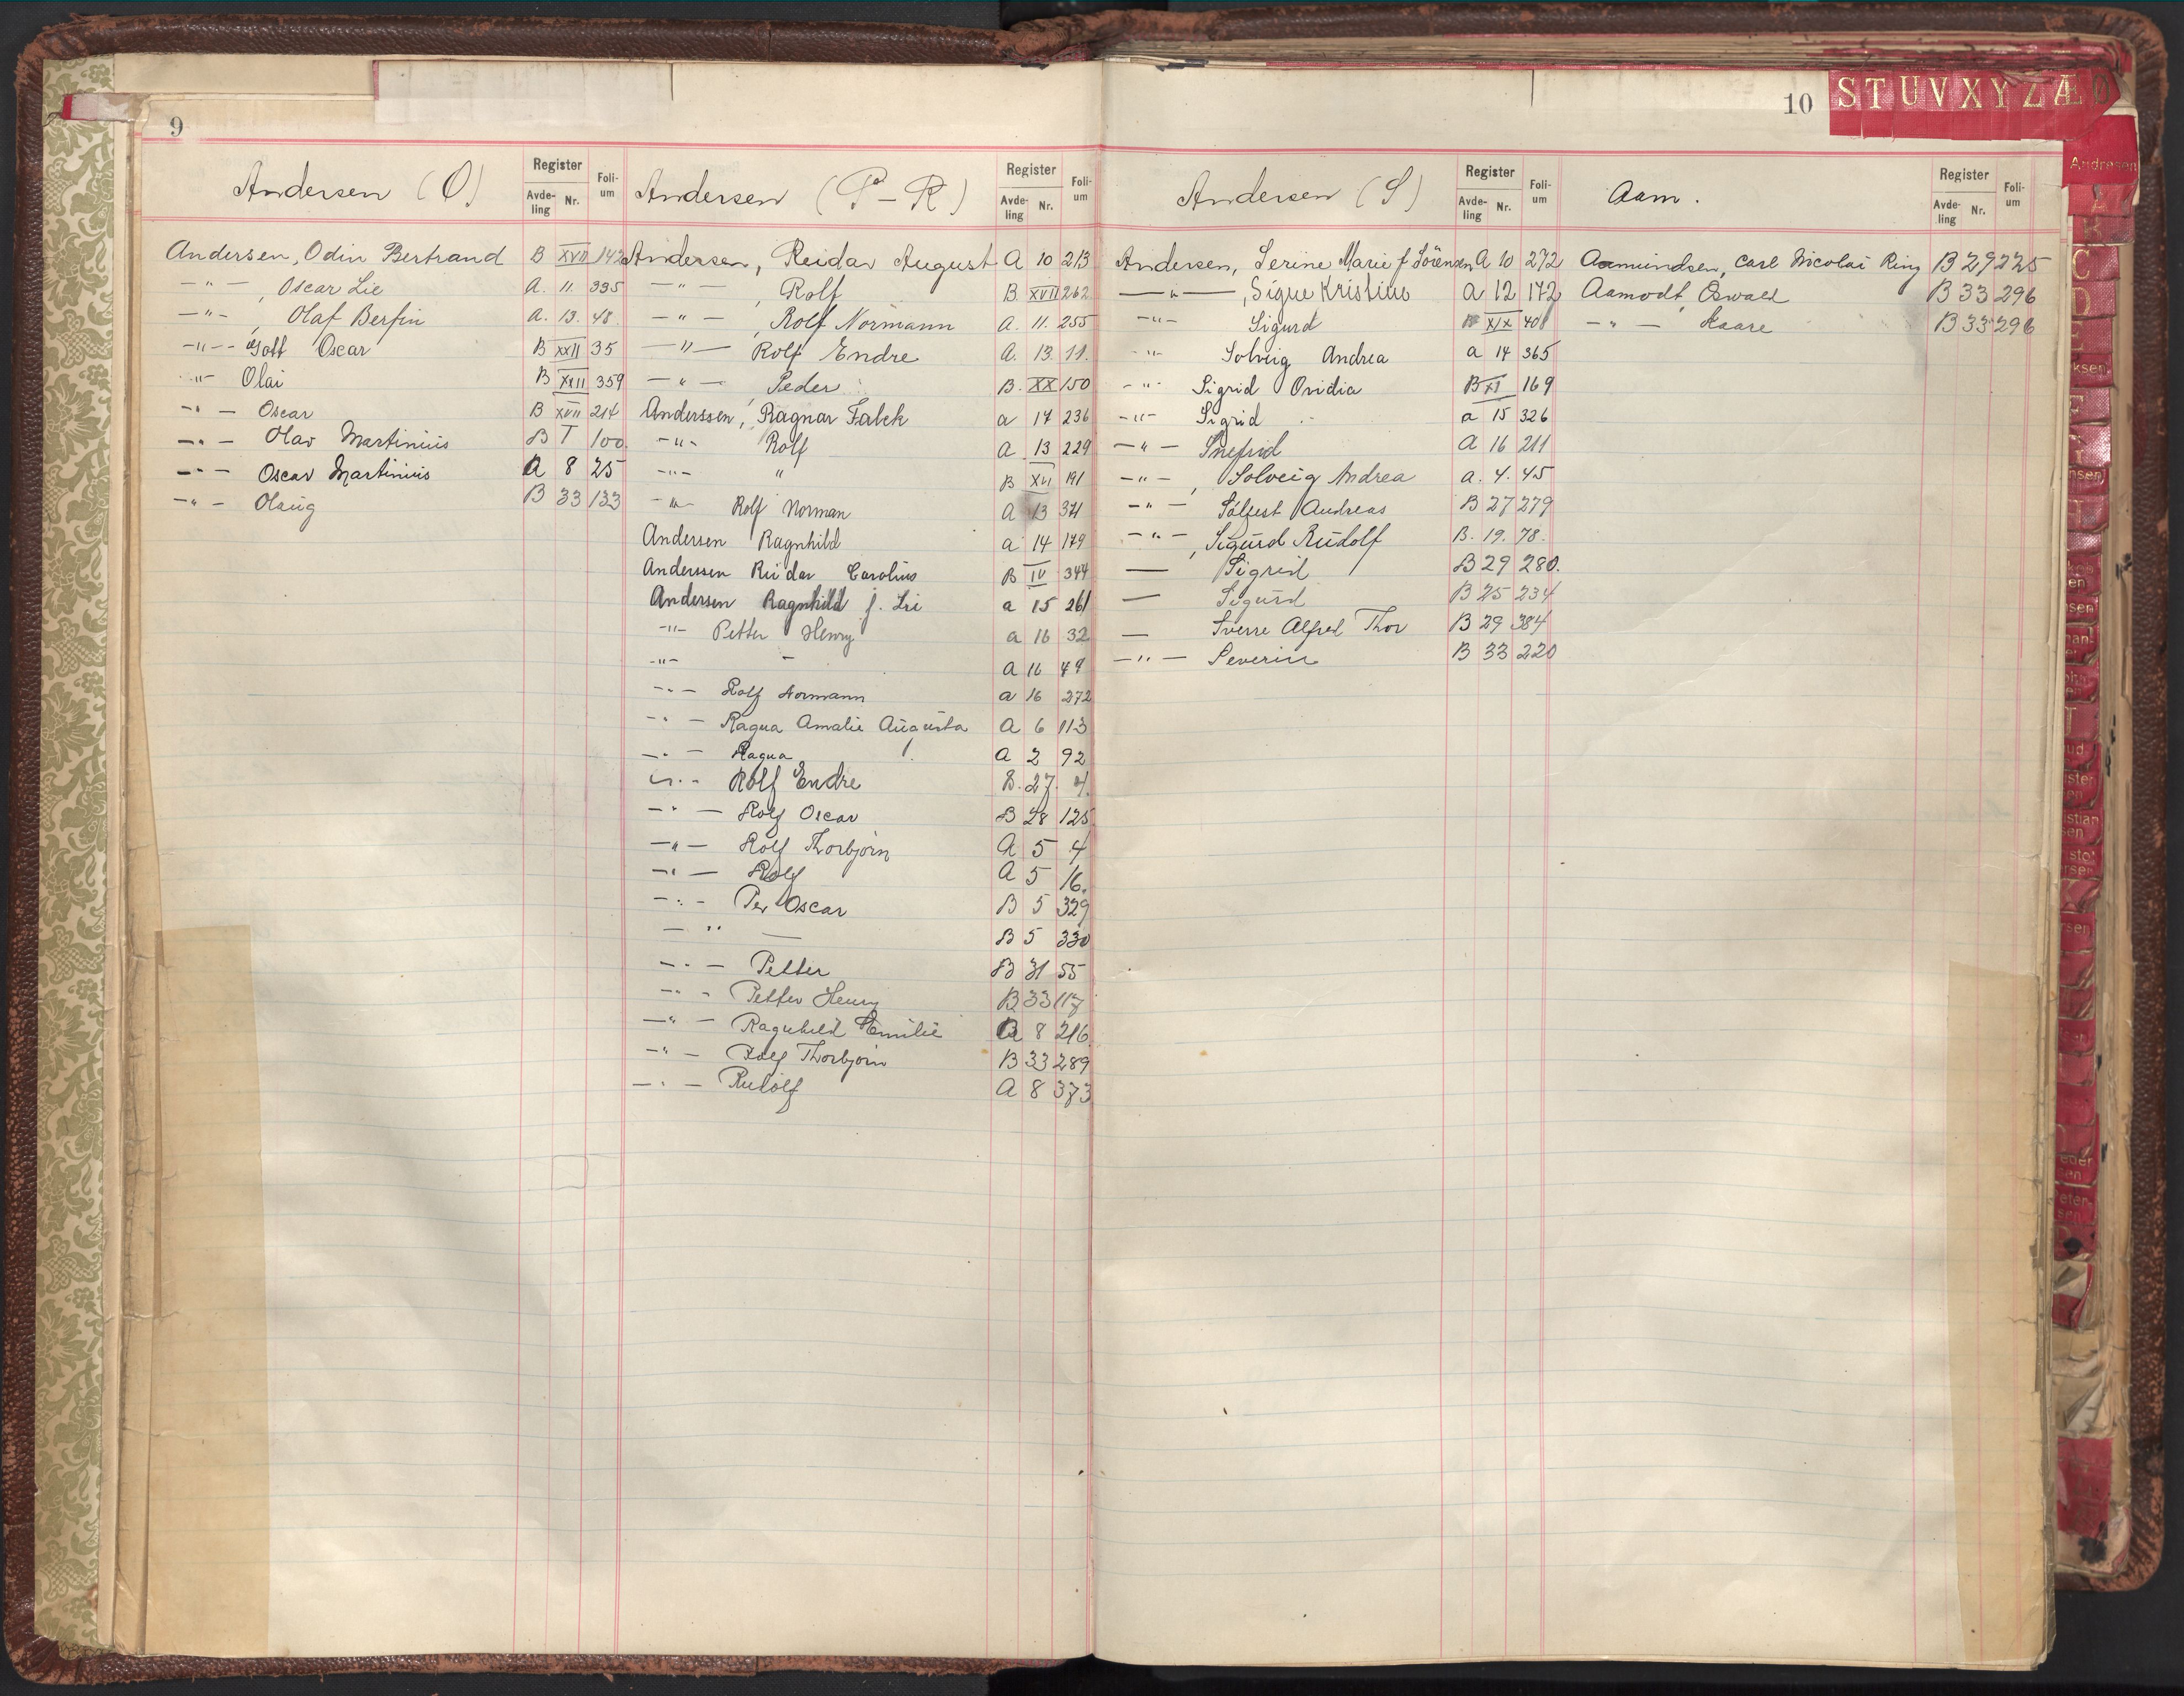 9
Andersen (O)
Register
Avde-ling Nr.
Foli-um
Andersen, Odin Bertrand B XVII 142
-"- , Oscar Lie A. 11. 335
-"- , Olaf Berfin A. 13. 48.
-"- Oscar B XXII 35
-"- Olai B XXII 359
-"- Oscar B XVII 214
-"- Olav Martinius B I 100.
-"- Oscar Martinius A 8 25
-"- Olaug B 33 133
Andersen (P-R)
Register
Avde-ling Nr.
Foli-um
Andersen, Reidar August A 10 213
-"- , Rolf B. XVII 262
-"- , Rolf Normann A. 11. 255
-"- Rolf Endre A. 13. 11.
-"- , Peder B. XX 150
Anderssen, Ragnar Falck a 17 236
-"- Rolf a 13 229
-"- " B XVI 191
-"- Rolf Norman A 13 371
Andersen Ragnhild a 14 179
Anderssen Reidar Carolius B IV 344
Andersen Ragnhild f. Lie a 15 261
-"- Petter Henry a 16 32
-"- - A 16 49
-"- Rolf Normann a 16 272
-"- Ragna Amalie Augusta A 6 113
-"- Ragna A 2 92
-"- Rolf Endre B. 27. 4.
-"- Rolf Oscar B 28 125
-"- Rolf Thorbjørn A 5 4
-"- Rolf A 5 16.
-"- Per Oscar B 5 329
-"- — B 5 330
-"- Petter B 31 55
-"- Petter Henry B 33 117
-"- Ragnhild Emilie A 8 216.
-"- Rolf Thorbjørn B 33 289
-"- Rudolf A 8 373
10
S T U V X Y Z Æ Ø
Andersen (S)
Register
Avde-ling Nr.
Foli-um
Andersen, Serine Marie f Sörensen A 10 272
-"- , Signe Kristine a 12 172
-"- Sigurd B XIX 408
-"- Solveig Andrea a 14 365
-"- Sigrid Ovidia B XI 169
-"- Sigrid a 15 326
-"- Snefrid A 16 211
-"- , Solveig Andrea a. 4. 45
-"- Sölfest Andreas B 27 279
-"- , Sigurd Rudolf B. 19. 78.
— Sigrid B 29 280.
— Sigurd B 25 234
— Sverre Alfred Thor B 29 384
-"- Severin B 33 220
Aam.
Register
Avde-ling Nr.
Foli-um
Aamundsen, Carl Nicolai Ring B 29 225
Aamodt, Oswald B 33 296
-"- Kaare B 33 296
Andresen